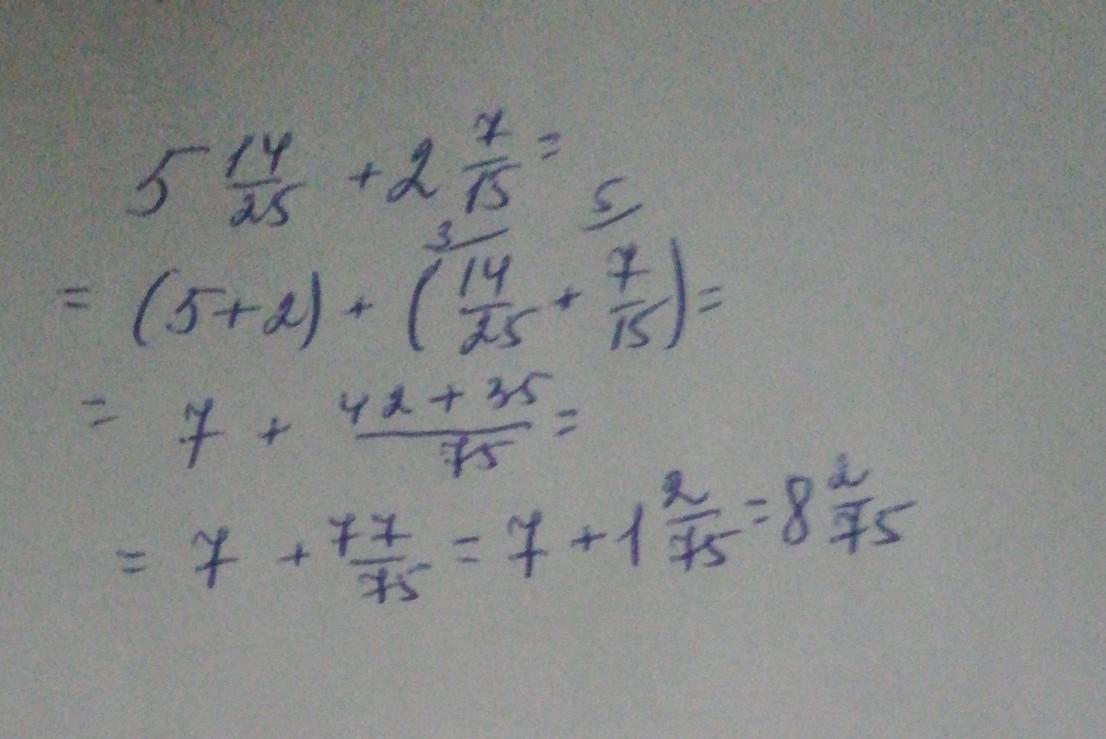 5 14/25 + 2 7/15 =
3 5
= (5+2) + (14/25 + 7/15) =
= 7 + 42+35/75 =
= 7 + 77/75 = 7 + 1 2/75 = 8 2/75